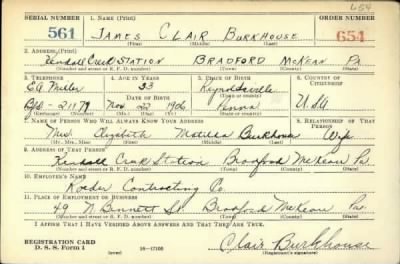 654
SERIAL NUMBER 1. NAME (Print) ORDER NUMBER
561 JAMES CLAIR BURKHOUSE 654
(First) (Middle) (Last)
2. ADDRESS (Print)
Kendall Creek STATION BRADFORD McKEAN Pa.
(Number and street or R. F. D. number) (Town) (County) (State)
3. TELEPHONE 4. AGE IN YEARS 5. PLACE OF BIRTH 6. COUNTRY OF CITIZENSHIP
E.A. Miller 33 Reynoldsville
(Town or county)
2117 Nov. 22 1906 Penna U.S.A.
(Exchange) (Number) (Mo.) (Day) (Yr.) (State or country)
7. NAME OF PERSON WHO WILL ALWAYS KNOW YOUR ADDRESS 8. RELATIONSHIP OF THAT PERSON
Mrs. Elizabeth Matilda Burkhouse Wife
(Mr., Mrs., Miss) (First) (Middle) (Last)
9. ADDRESS OF THAT PERSON
Kendall Creek Station Bradford McKean Pa.
(Number and street or R. F. D. number) (Town) (County) (State)
10. EMPLOYER'S NAME
Contracting Co.
11. PLACE OF EMPLOYMENT OR BUSINESS
49 N Bennett St. Bradford McKean Pa.
(Number and street or R. F. D. number) (Town) (County) (State)
I AFFIRM THAT I HAVE VERIFIED ABOVE ANSWERS AND THAT THEY ARE TRUE.
REGISTRATION CARD
D. S. S. Form 1 (over) Clair Burkhouse
(Registrant's signature)